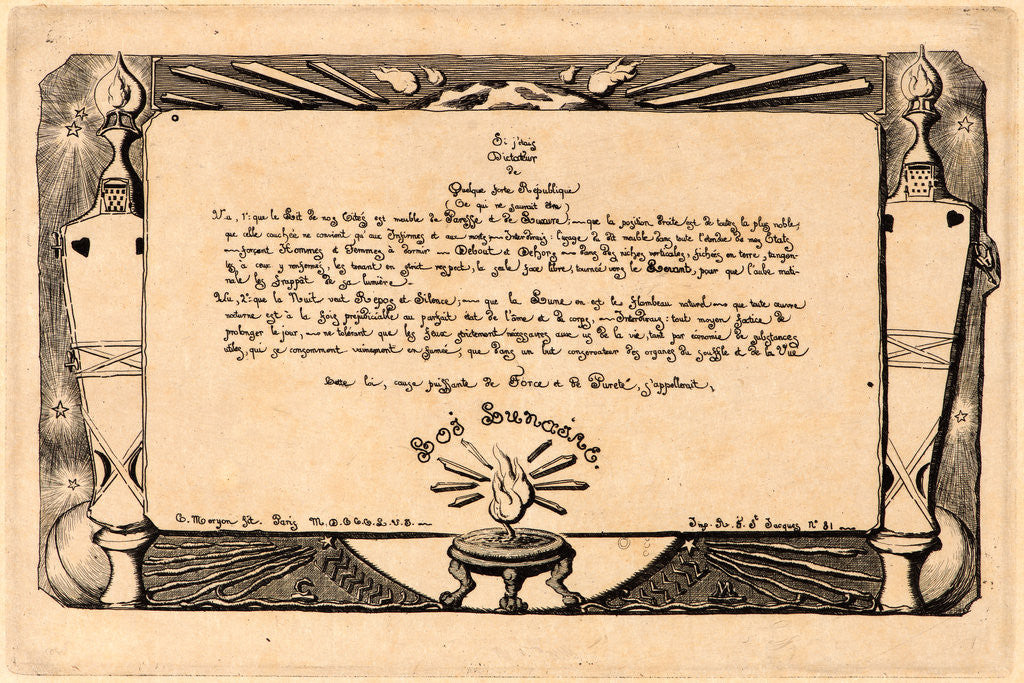 Si j'étais
Dictateur
de
Quelque forte République
(Ce qui ne saurait être)
Vu, 1º: que le Lit de nos Cités est meuble de Paresse et de Luxure; — que la position droite est de toutes la plus noble,
que celle couchée ne convient qu'aux Infirmes et aux morts, — Interdirais: l'usage du dit meuble dans toute l'étendue de nos Etats
— forçant Hommes et Femmes à dormir — Debout et Dehors — dans des niches verticales, fichées en terre, tangen-
tes à ceux y renfermés, les tenant en strict respect, la seule face libre, tournée vers le Levant, pour que l'aube mati-
nale les frappât de sa lumière. —
Vu, 2º: que la Nuit veut Repos et Silence; — que la Lune en est le flambeau naturel — que toute œuvre
nocturne est à la fois préjudiciable au parfait état de l'âme et de corps, — Interdirais: tout moyen factice de
prolonger le jour, — ne tolérant que les feux strictement nécessaires aux us de la vie, tant par économie de substances
utiles, qui se consomment vainement en fumée, que dans un but conservateur des organes du souffle et de la Vue
Cette loi, cause puissante de Force et de Pureté, s'appellerait,
Loi Lunaire.
C. Meryon fit. Paris M.D.C.C.C.L.V.I. —
Imp. R. F. St Jacques Nº 81 —